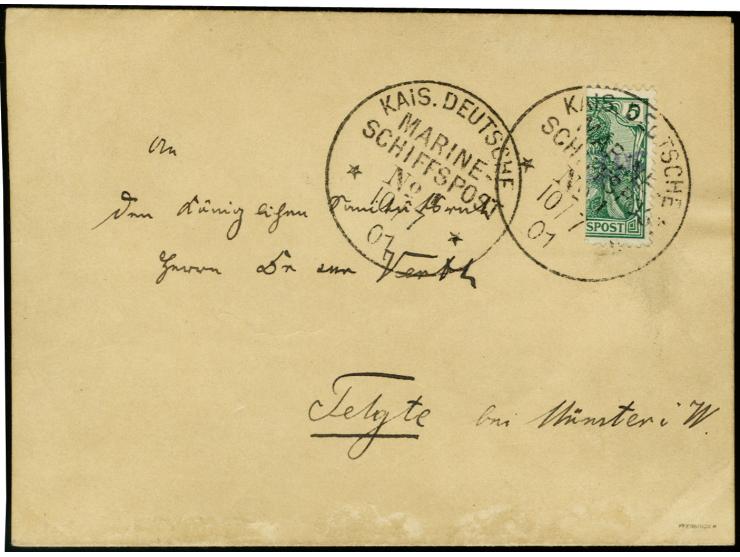 KAIS. DEUTSCHE
MARINE-
SCHIFFSPOST
No
10/7
01
KAIS. DEUTSCHE
MARINE-
SCHIFFSPOST
No
10/7
01
5
SPOST
An
den Königlichen Sanitätsrath
Herrn Dr zur Verth
Telgte bei Münster i W.